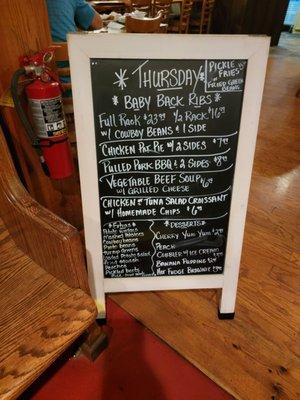 *THURSDAY*
PICKLE w/
FRIES
or
FRIED GREEN BEANS
*BABY BACK RIBS*
FULL RACK $23 1/2 RACK $16
w/ COWBOY BEANS & 1 SIDE
CHICKEN POT PIE w/ 2 SIDES $7
PULLED PORK BBQ & 2 SIDES $8
VEGETABLE BEEF SOUP $6
w/ GRILLED CHEESE
CHICKEN or TUNA SALAD CROISSANT
w/ HOMEMADE CHIPS $6
*Extras*
Mashed Potatoes
Cowboy beans
Pinto beans
Turnip Greens
Potato Salad
Fried Apples
Peaches
Pickled beets
*DESSERTS*
CHERRY YUM YUM
PEACH
COBBLER w/ ICE CREAM
BANANA PUDDING
HOT FUDGE BROWNIE